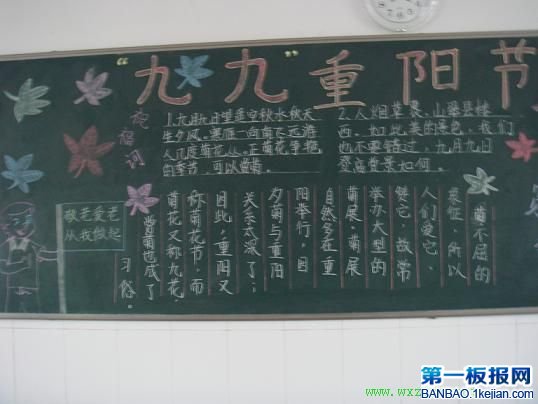 “九九”重阳节
祝福词
1.九月九日望遥空,秋水秋天
生夕风。寒雁一向南飞远,游
人几度菊花丛。正菊花争艳
的季节,可以赏菊。
2.人烟草
西。如此美的景色,我们
也不要错过,九月九日
登高赏景如何。
敬老爱老
从我做起
菊不屈的
象征,所以
人们爱它、
赞它,故常
举办大型的
菊展。菊展
自然多在重
阳举行,因
夕菊与重阳
关系太深了;
因此,重阳又
称菊花节,而
菊花又称九花。
赏菊也成了
习俗。
第一板报网
BANBAO.1kejian.com
www.wxz